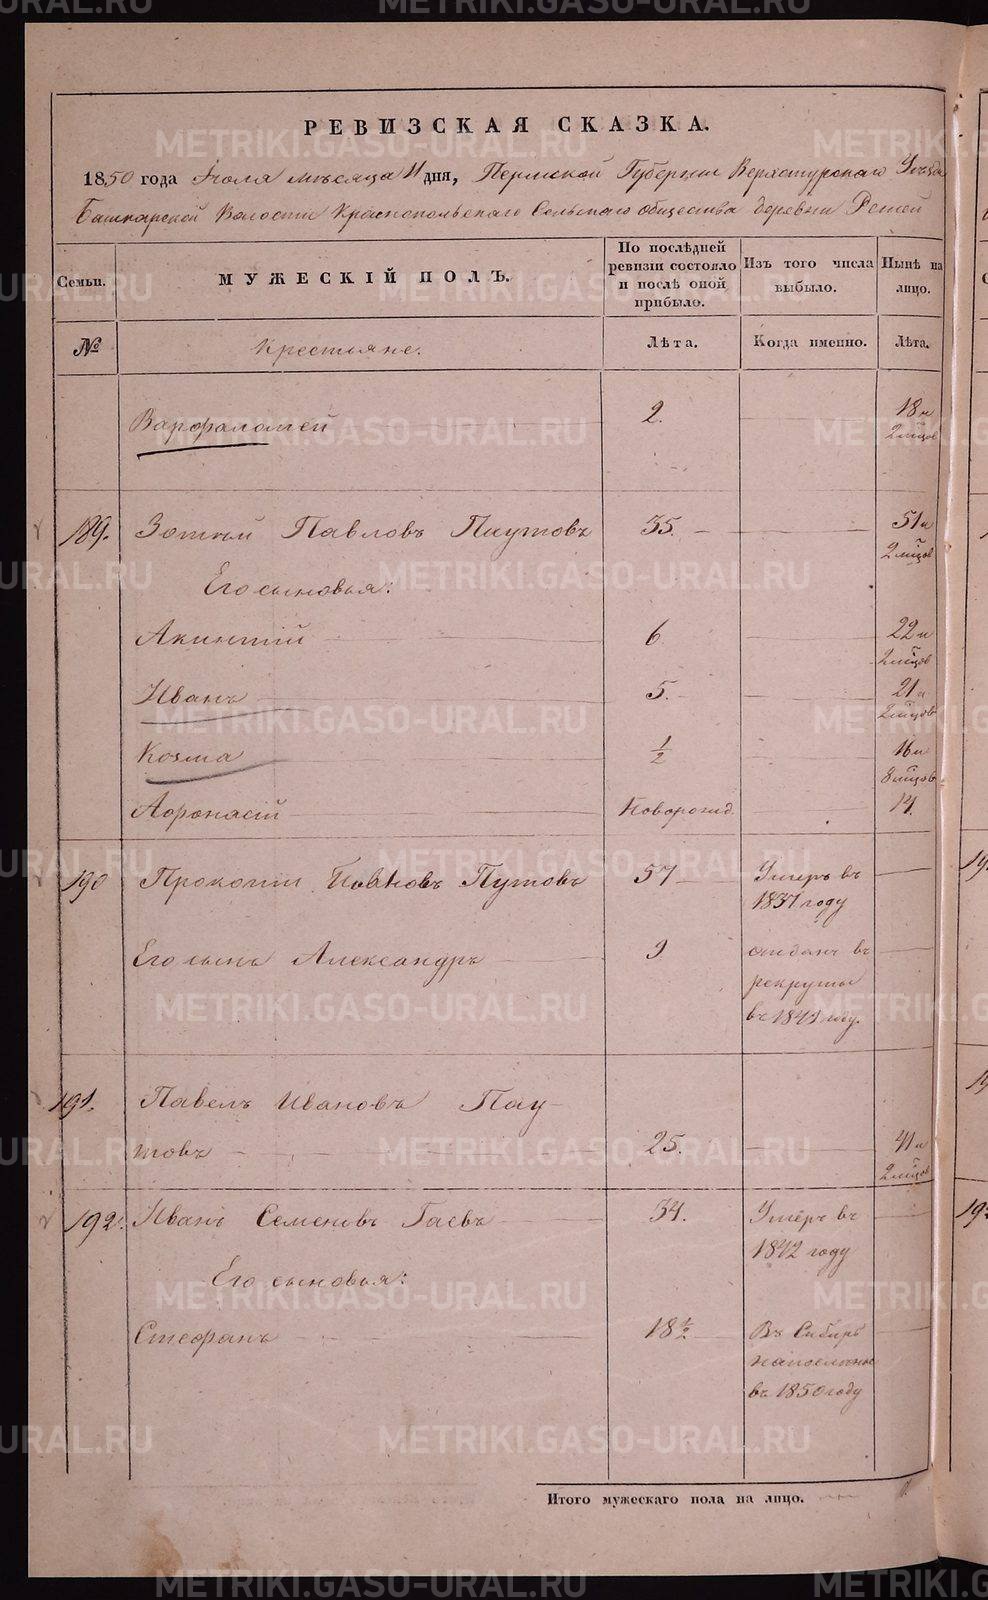 РЕВИЗСКАЯ СКАЗКА.
1850 года Июля мѣсяца 11 дня, Пермской Губернии Верхотурскаго Уѣзда
Башкарской Волости Краснопольскаго Сельскаго общества деревни Реший
Семьи. МУЖЕСКІЙ ПОЛЪ. По послѣдней ревизіи состояло и послѣ оной прибыло. Изъ того числа выбыло. Нынѣ на лицо.
№ Крестьяне. Лѣта. Когда именно. Лѣта.
Варфаламей 2. 18 и
2 мѣцов
189. Зотѣй Павловъ Паутовъ 35. 51 и
2 мѣцов
Его сыновья:
Акинтій 6 22 и
2 мѣцов
Иванъ 5. 21 и
2 мѣцовъ
Козма 1/2 16 и
8 мѣцов
Афонасій Новорожд. 14.
190 Прокопій Ивановъ Путовъ 57 Умеръ въ
1837 году
Его сынъ Александръ 9 отданъ въ
рекруты
въ 1841 году.
191. Павелъ Ивановъ Пау-
товъ 25. 41 и
2 мѣцов
192. Иванъ Семеновъ Гаевъ 34. Умеръ въ
1842 году
Его сыновья:
Стефанъ 18 1/2 Въ Сибирь
на поселенье
въ 1850 году
Итого мужескаго пола на лицо.
METRIKI.GASO-URAL.RU